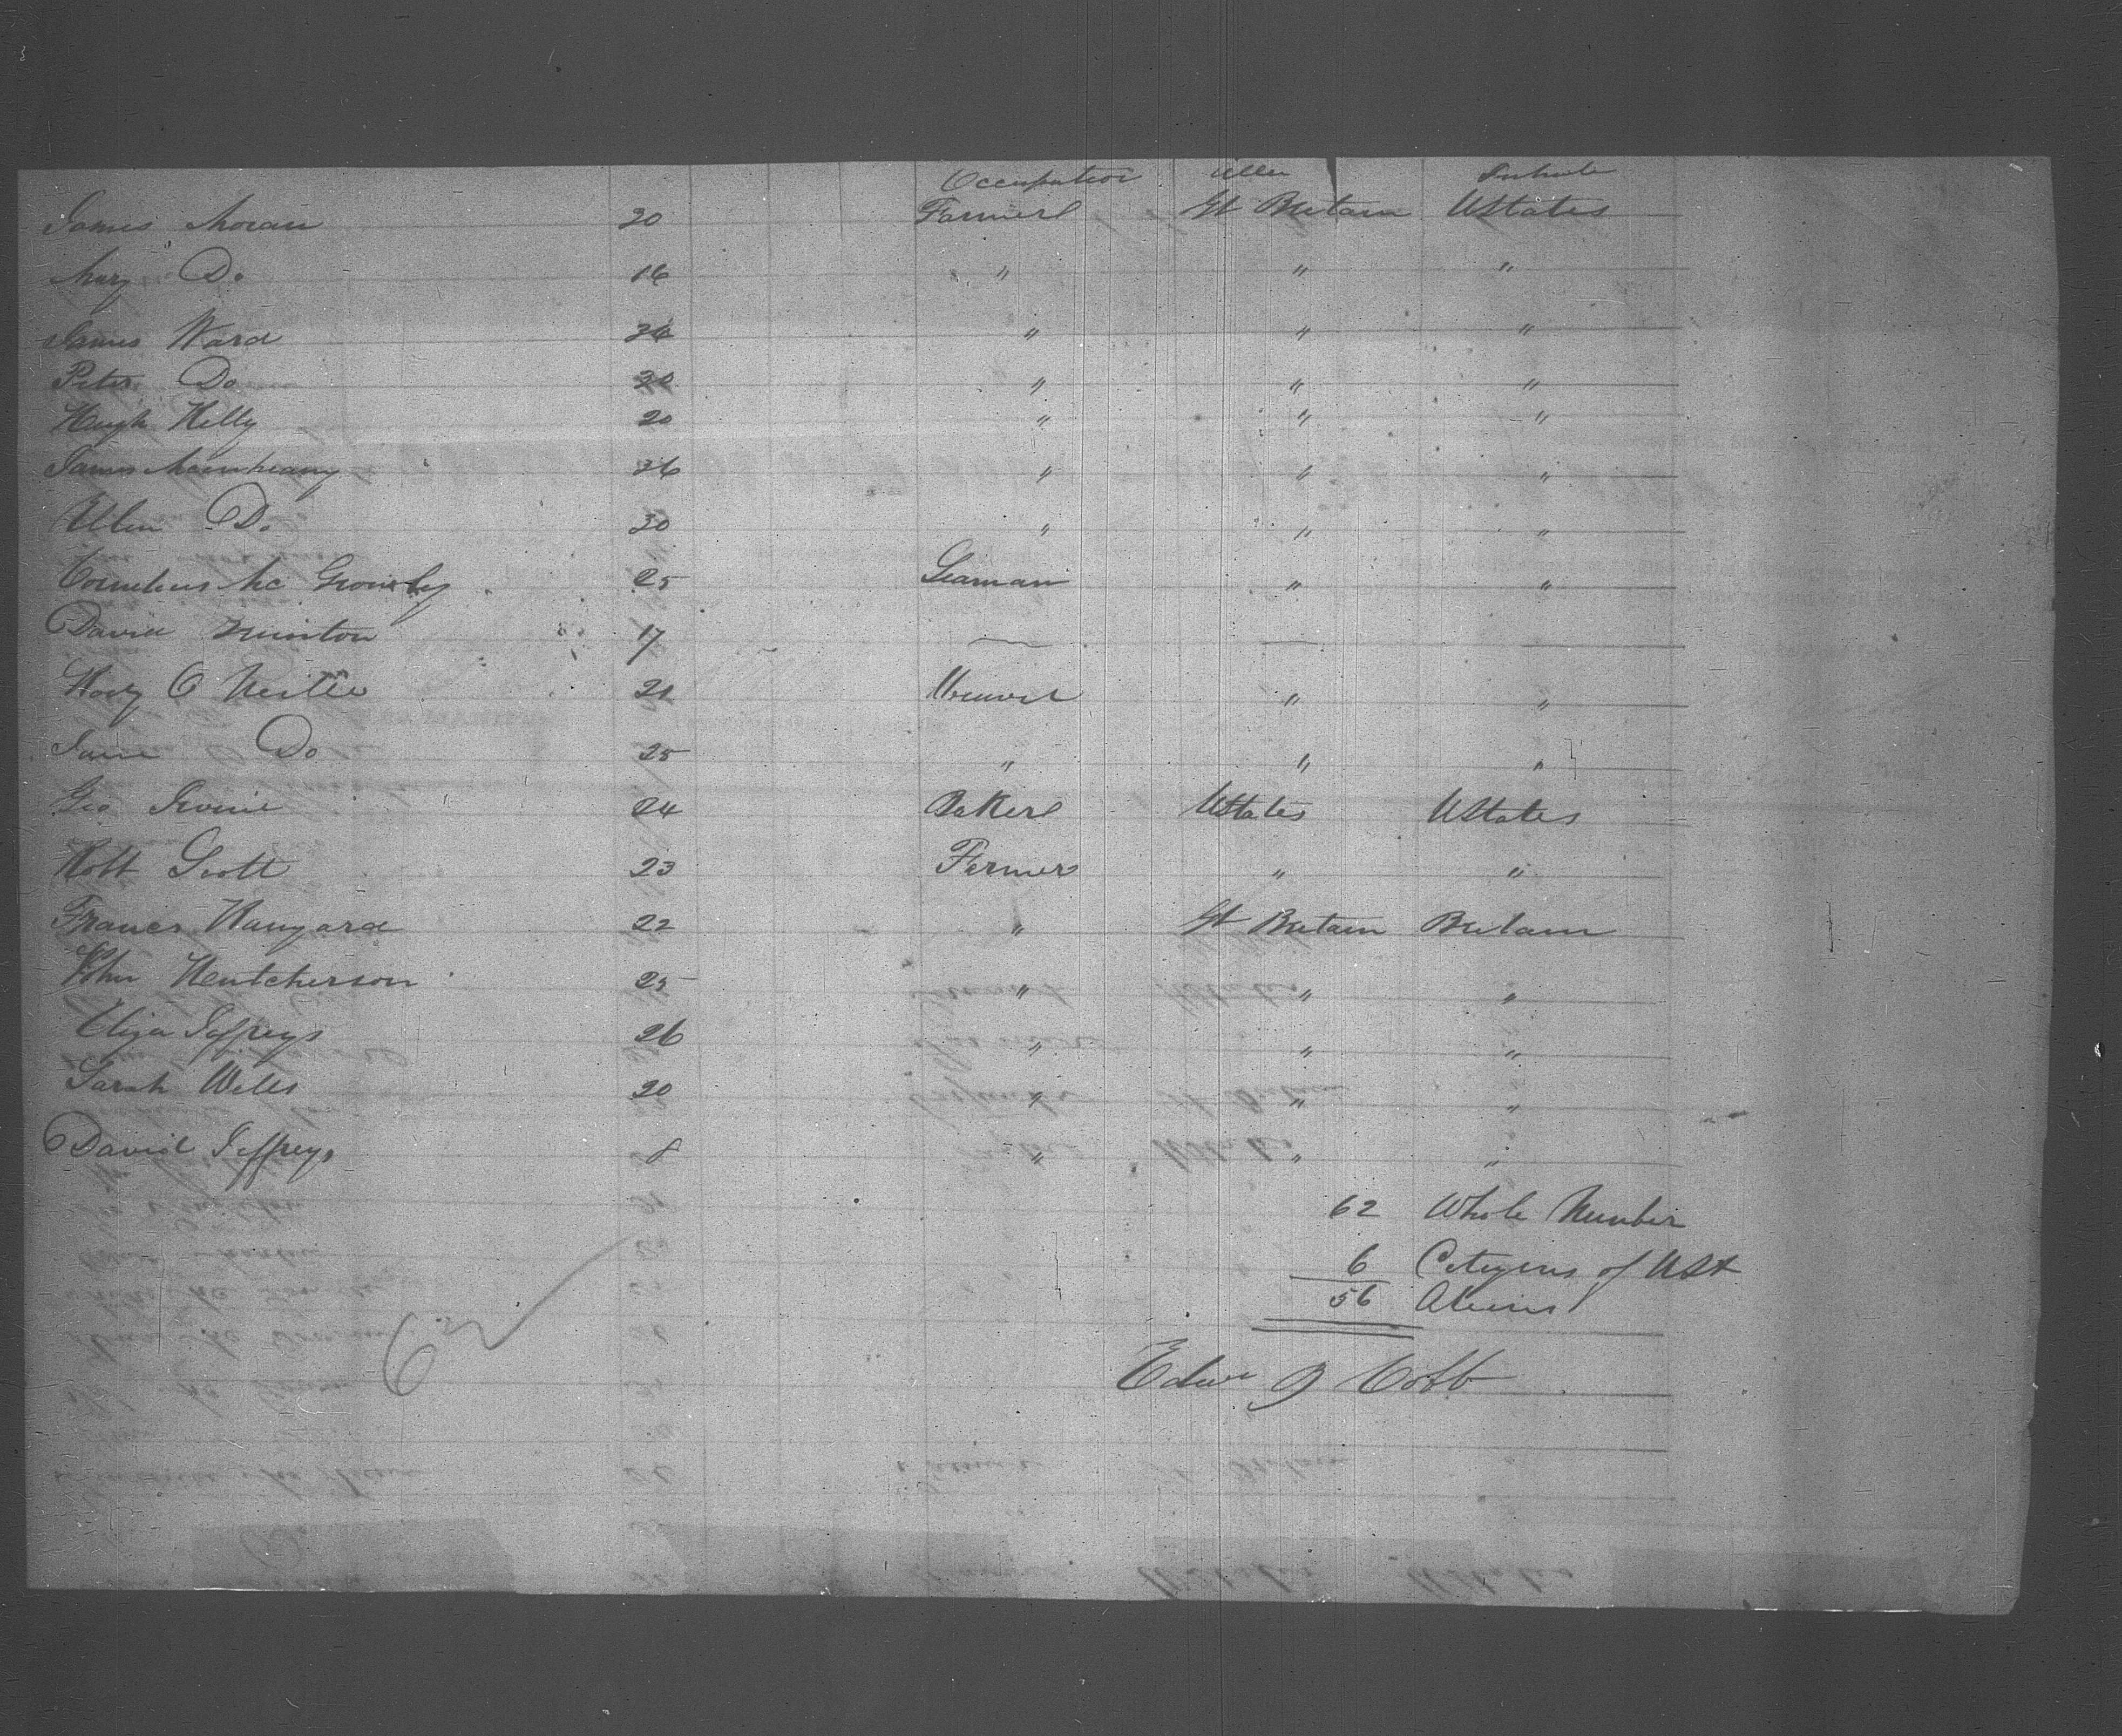 Occupation
James Moran 20 Farmer Gt Britain UStates
Mary Do 16 " " "
James Ward " " "
Peter Do 20 " " "
Hugh Kelly 20 " " "
James 26 " " "
Ellen Do 30 " " "
Cornelius Mc 25 Seaman " "
David 17 — — —
O Neille 21 Weaver " "
Jane Do 25 " " "
Geo Irvine 24 Baker UStates UStates
Robt Scott 23 Farmer " "
Francis 22 " Gt Britain Britain
John Hentcherson 25 " " "
Eliza Jeffreys 26 " " "
Sarah Wells 20 " " "
David Jeffreys 8 " " "
62 Whole Number
6 Citizens of USt
56 Aliens
Edw J Cobb
62